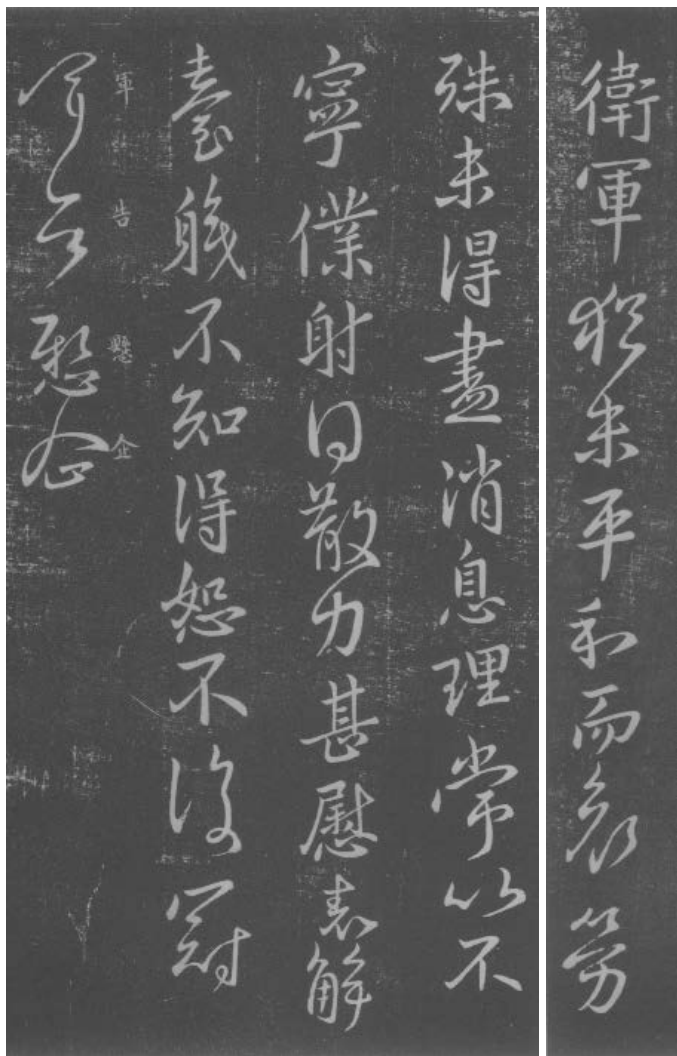 衛軍猶未平和而哀勞
殊未得盡消息理常以不
寧僕射日散力甚慰表解
臺職不知得恕不復冠
軍告懸企
軍告懸企